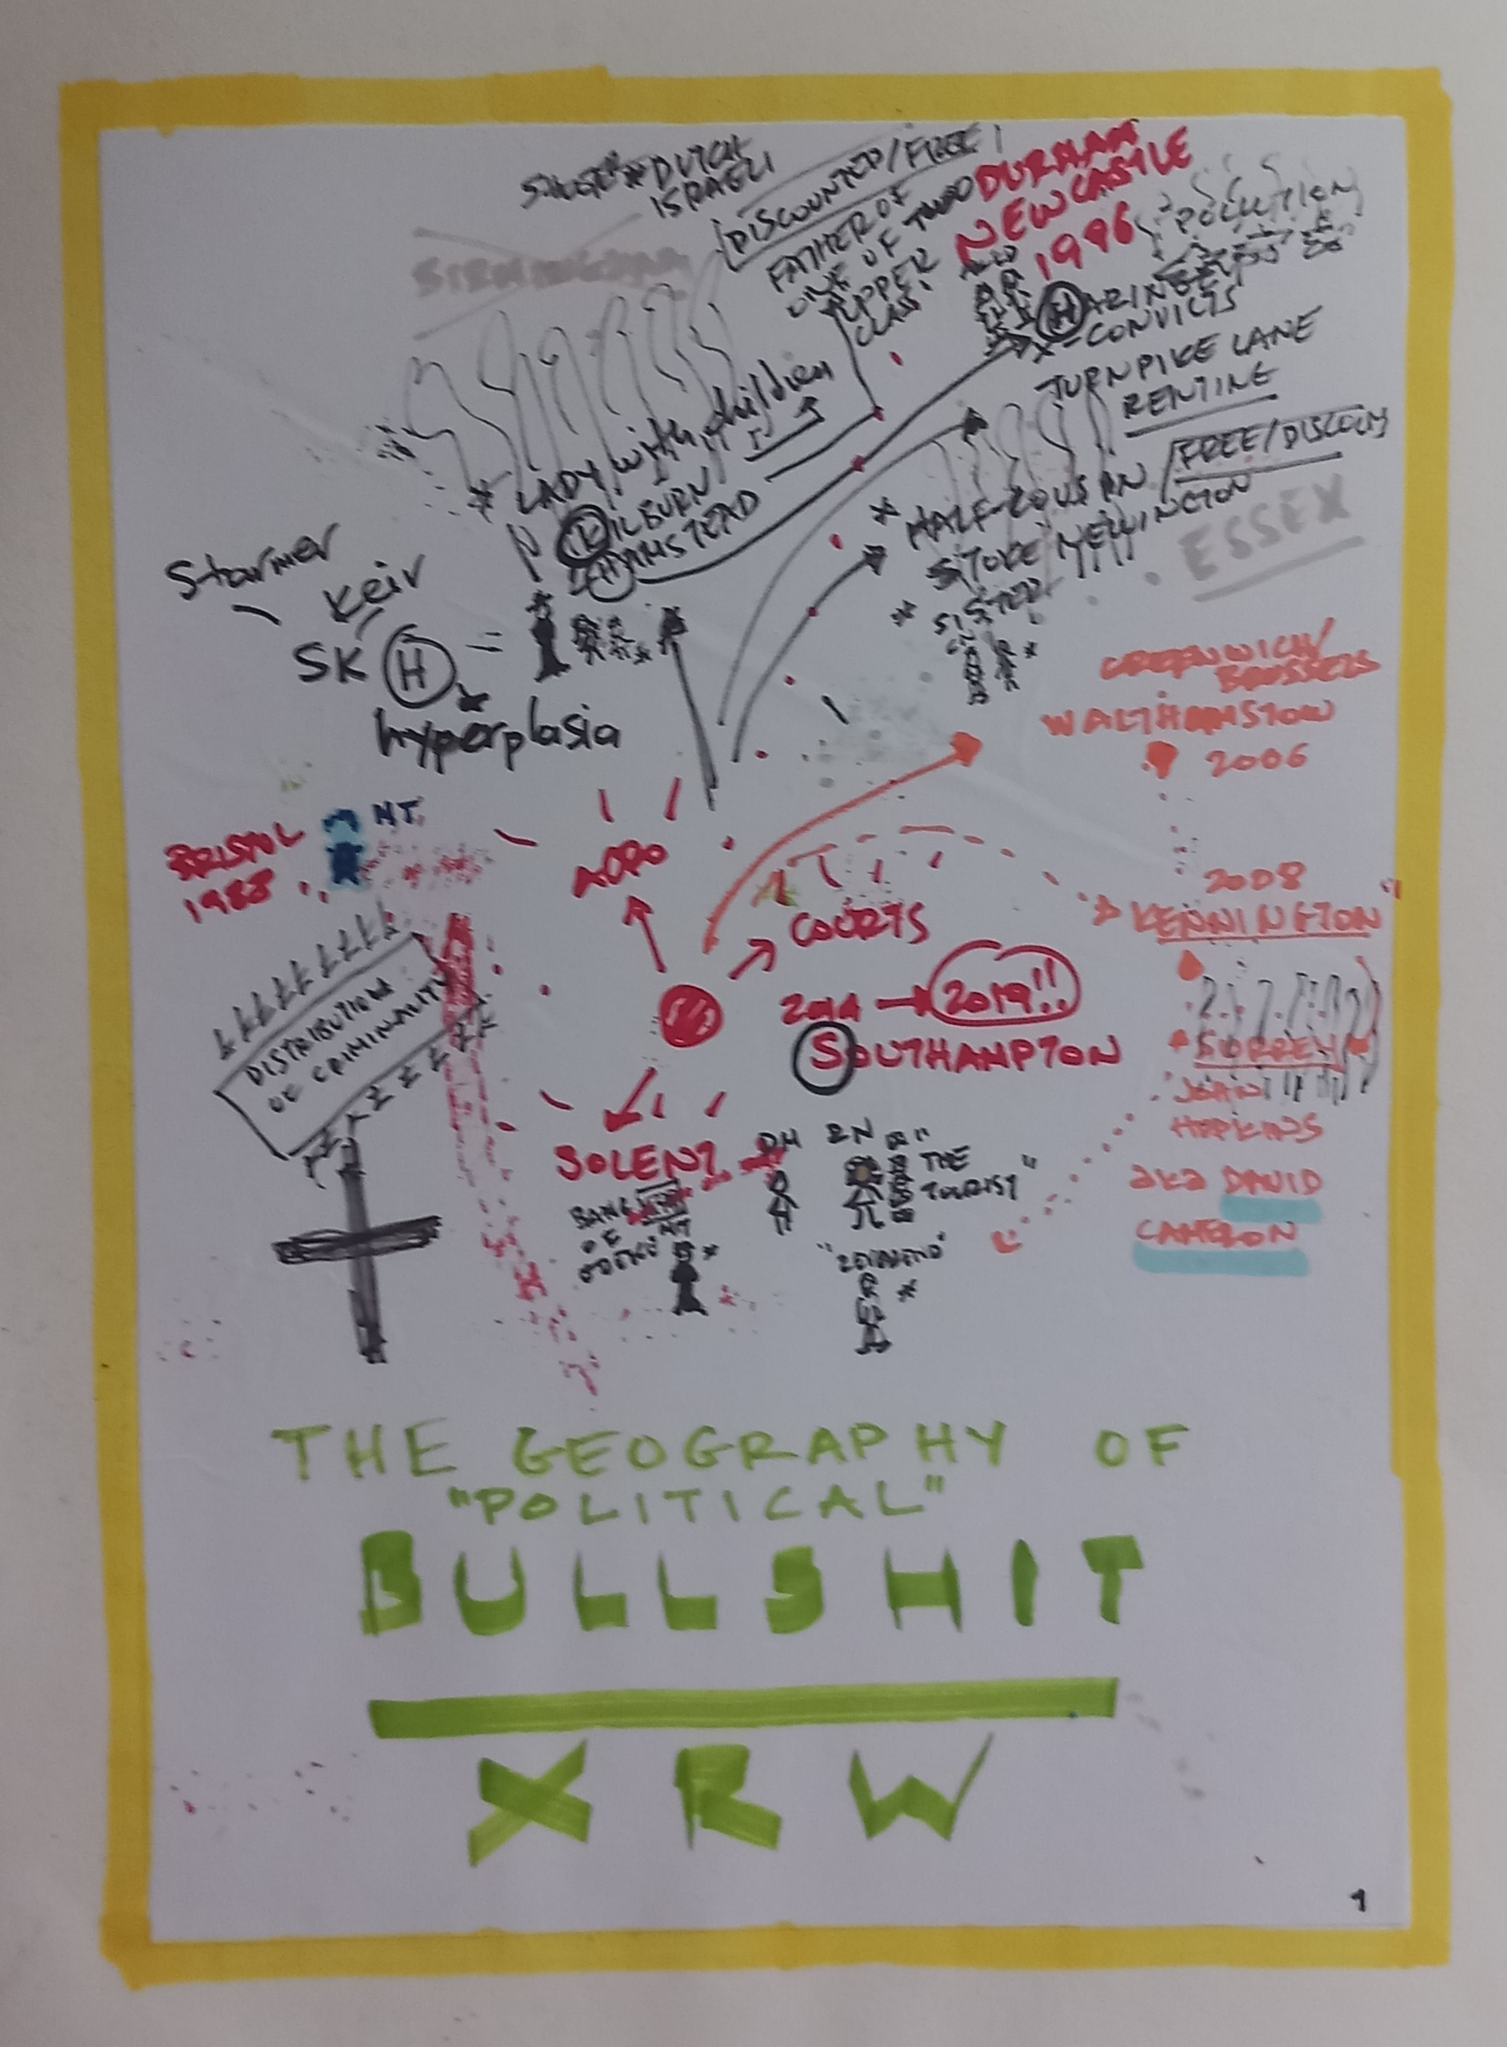 DUTCH
ISRAELI
DISCOUNTED/FREE
FATHER OF
ONE OF
UPPER
CLASS
DURHAM
NEWCASTLE
1996
POLLUTION
HARINGEY
X-CONVICTS
TURNPIKE LANE
RENTING
* LADY with children
KILBURN
HAMSTEAD
* HALF-COUSIN
FREE/DISCOUN
STOKE NEWINGTON
* SISTER
ESSEX
Starmer
Keir
SK H =
hyperplasia
GREENWICH/
BRUSSELS
WALTHAMSTOW
2006
BRISTOL
1988
MT.
COURTS
2008
KENNINGTON"
2014 → 2019!!
SOUTHAMPTON
DISTRIBUTION
OF CRIMINALITY
SURREY
JOHN
HOPKINS
aka DAVID
CAMERON
SOLENT
BANG
OF
MT
DH
2N
"THE
TOURIST"
THE GEOGRAPHY OF
"POLITICAL"
BULLSHIT
XRW
1